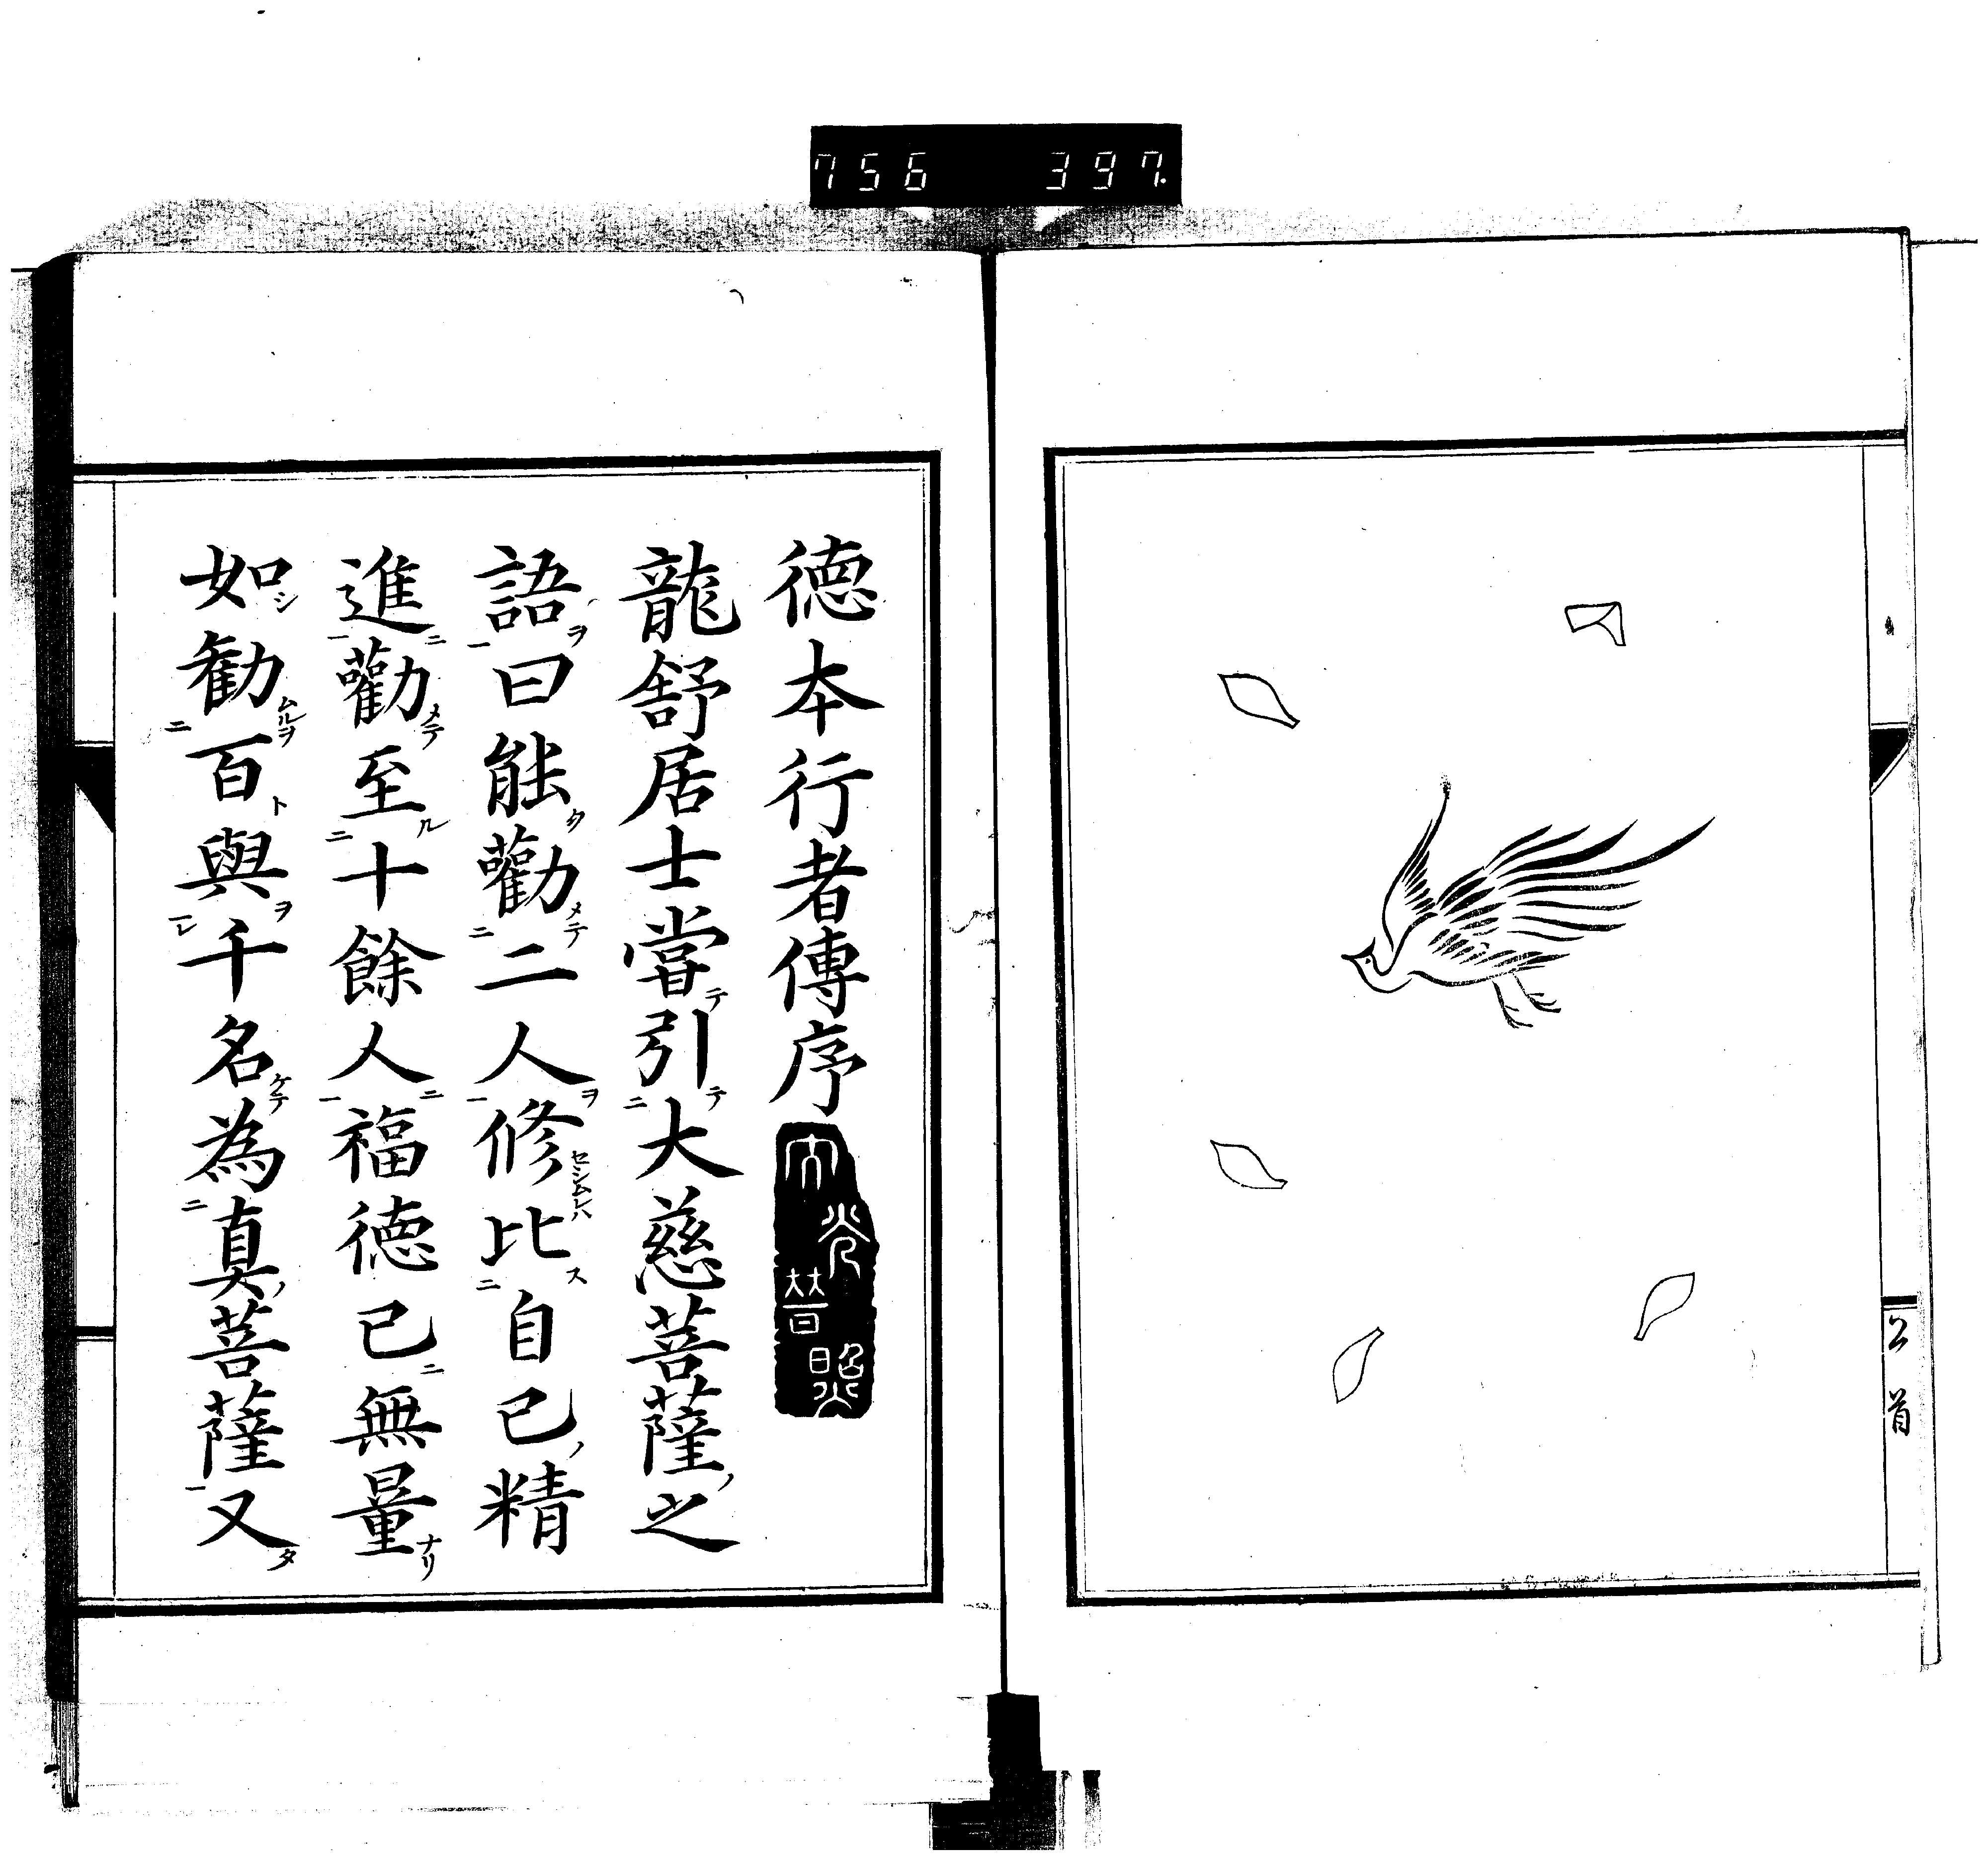 756 397.
德本行者傳序
大光普照
龍舒居士嘗引大慈菩薩之
語曰能勸二人修比自己精
進勸至十餘人福德已無量
如勧百與千名為真菩薩又